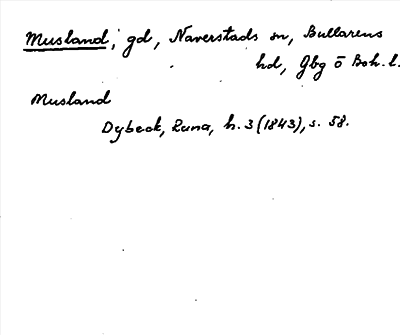 Musland, gd, Naverstads sn, Bullarens
hd, Gbg o Boh. l.
Musland
Dybeck, Runa, h. 3 (1843), s. 58.